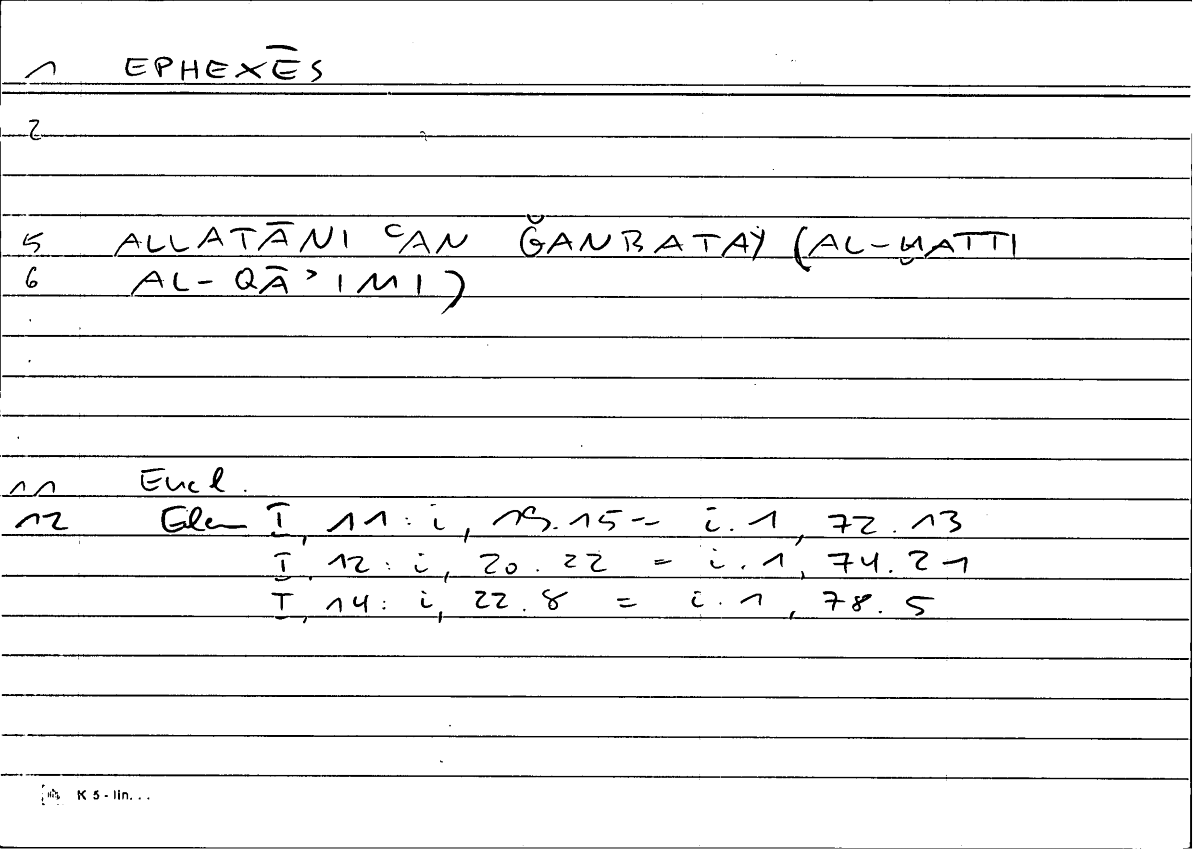 1 EPHEXĒS
2
5 ALLATĀNI ʿAN ǦANBATAY (AL-ḪAṬṬI
6 AL-QĀʾIMI)
11 Eucl.
12 Elem I, 11: i, 19.15 = i.1, 72.13
I, 12: i, 20.22 = i.1, 74.21
I, 14: i, 22.8 = i.1, 78.5
K 5 - lin. . .